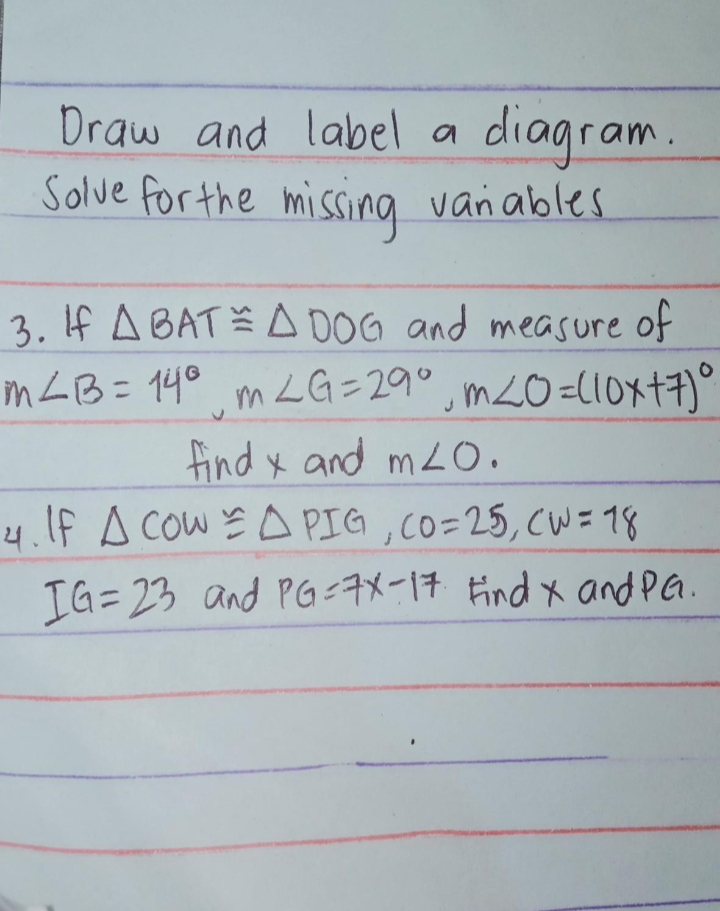 Draw and label a diagram.
Solve for the missing variables
3. If △BAT ≅ △DOG and measure of
m∠B = 14°, m∠G=29°, m∠O=(10x+7)°
find x and m∠O.
4. If △COW ≅ △PIG, CO=25, CW=18
IG=23 and PG=7x-17. Find x and PG.